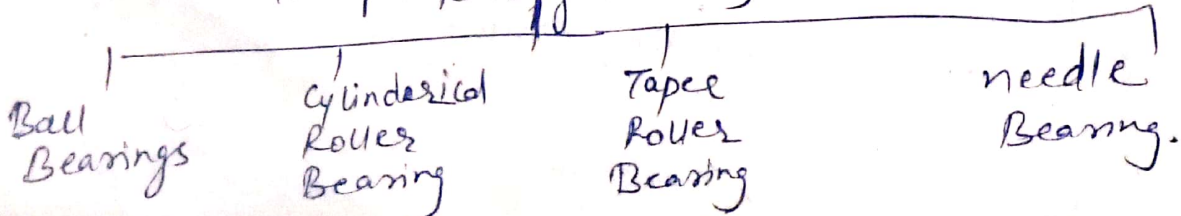 Ball
Bearings
Cylinderical
Roller
Bearing
Taper
Roller
Bearing
needle
Bearing.